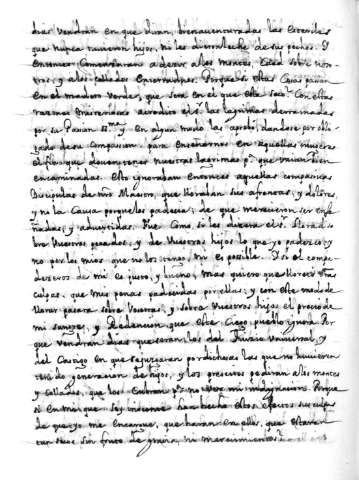 dias Vendran en que diran, bienaventuradas las Esteriles
que nunca tuvieron hijos, ni les dieron leche de sus pechos. Y
entonces Comenzaran a decir a los montes, Caed sobre noso-
tros, y a los collados Encerradnos. Porque si estas Cosas pasan
En el madero Verde, que será en el que este seco. Con estas
razones Enternecidas acredito el Sr. las lagrimas derramadas
por su Pasion SSma. y En algun modo las aprobó, dandose por obli-
gado de su Compasion para Enseñarnos En aquellas mugeres
el fin que deven tener nuestras lagrimas pa. que vayan bien
encaminadas. Esto ignoraban Entonces aquellas compasivas
Discipulas de nro. Maestro, que lloraban sus afrentas, y dolores
y no la Causa porque los padecia; de que merecieron ser Ense-
ñadas, y advertidas. Fue Como si les dixera el Sr. llorad so-
bre Vuestros pecados, y de Vuestros hijos lo que yo padezco, y
no por los mios que no los tengo, ni Es posible. Y si el compa-
deceros de mi Es justo, y bueno, mas quiero que lloreis Vtras
culpas, que mis penas padecidas por ellas; y con este modo de
llorar pasara sobre Vosotras, y sobre Vuestros hijos el precio de
mi sangre, y Redencion que este Ciego pueblo ignora. Por
que vendran dias que seran los del Juicio Universal, y
del Castigo En que se juzgaran por dichosas las que no huvieren
tenido generacion de hijos, y los prescitos pediran a los montes
y collados, que los Cubran pa. no ver mi indignacion. Porque
si En mi que Soy inocente han hecho estos efectos sus culpas
de que yo me Encargue, que haran En ellos, que estaran
tan secos sin fruto de gracia, ni merecimientos